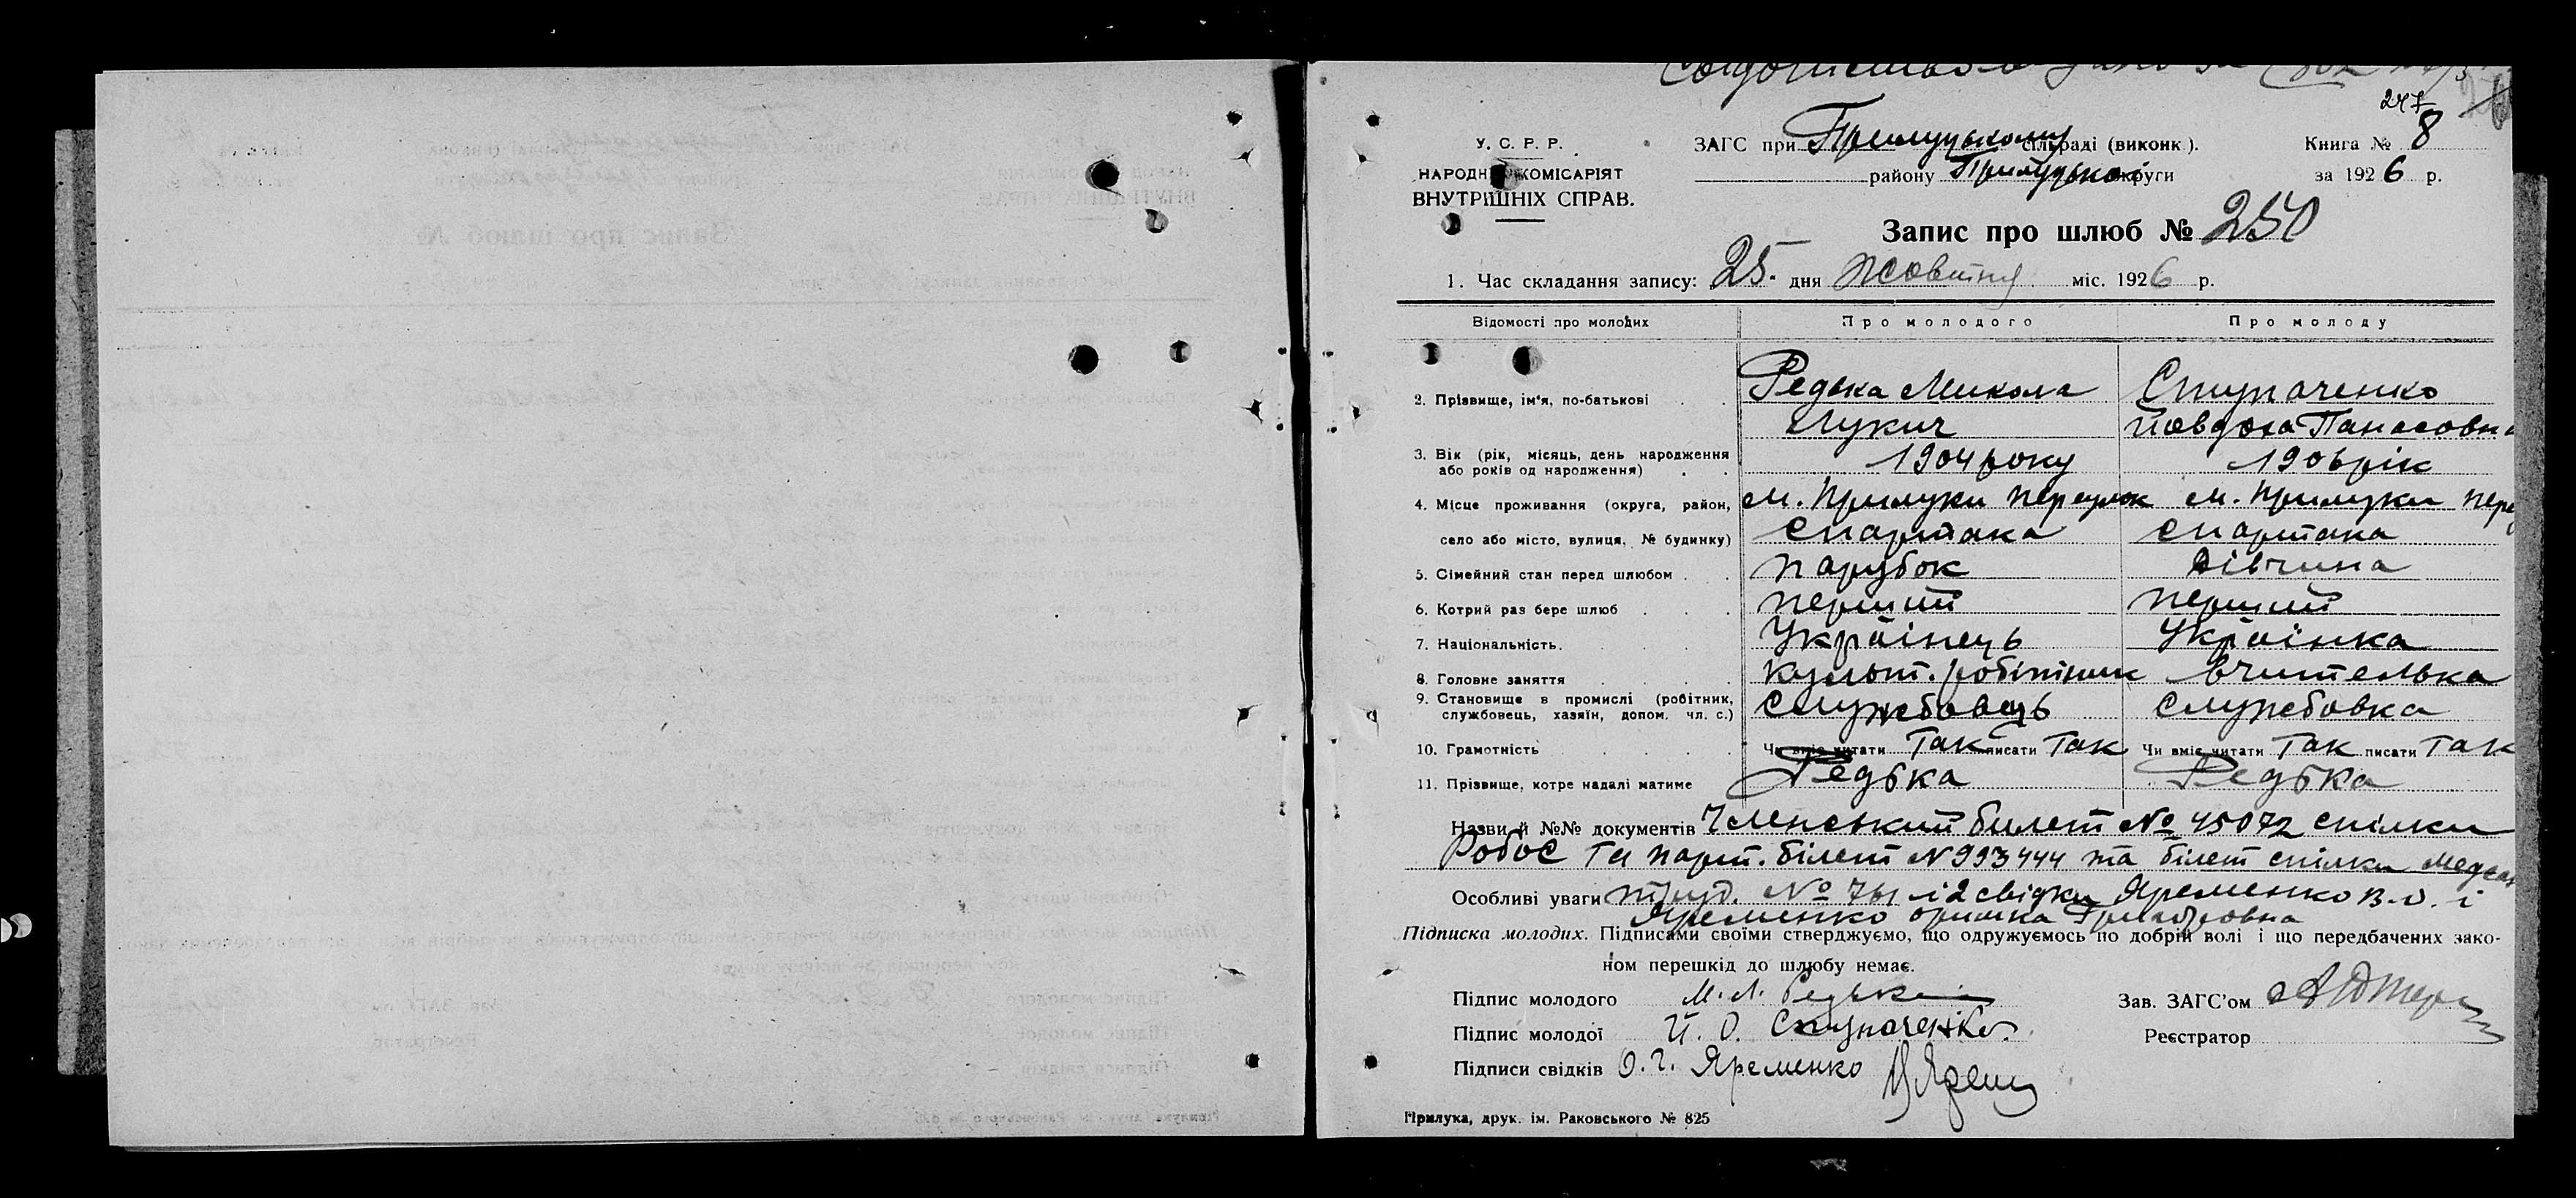 247
У. С. Р. Р.
НАРОДНІЙ КОМІСАРІЯТ
ВНУТРІШНІХ СПРАВ.
ЗАГС при Прилуцькому сільраді (виконк).
району Прилуцької округи
Книга № 8
за 1926 р.
Запис про шлюб № 250
1. Час складання запису: 25 дня жовтня міс. 1926 р.
Відомості про молодих Про молодого Про молоду
2. Прізвище, ім'я, по-батькові Редька Микола Ступаченко
Лукич Йовдоха Панасовн
3. Вік (рік, місяць, день народження
або років од народження) 1904 року 1906 рік
4. Місце проживання (округа, район, м. Прилуки переулок м. Прилуки пер
село або місто, вулиця, № будинку) Спартака Спартака
5. Сімейний стан перед шлюбом парубок дівчина
6. Котрий раз бере шлюб перший перший
7. Національність. Українець Українка
8. Головне заняття культ. робітник вчителька
9. Становище в промислі (робітник,
службовець, хазяїн, допом. чл. с.) Службовець Службовка
10. Грамотність Чи вміє читати так писати так Чи вміє читати так писати так
11. Прізвище, котре надалі матиме Редька Редька
Назви й №№ документів Членський билет № 45072 спілки
Робос та парт. білет № 993444 та білет спілки Медсан
Особливі уваги труд. № 761 і 2 свідки Яременко В. О. і
Яременко Оришка Григоровна
Підписка молодих. Підписами своїми стверджуємо, що одружуємось по добрій волі і що передбачених зако-
ном перешкід до шлюбу немає.
Підпис молодого М. Л. Редька
Зав. ЗАГС'ом
Підпис молодої Й. О. Ступаченко
Реєстратор
Підписи свідків О. Г. Яременко
Прилука, друк. ім. Раковського № 825